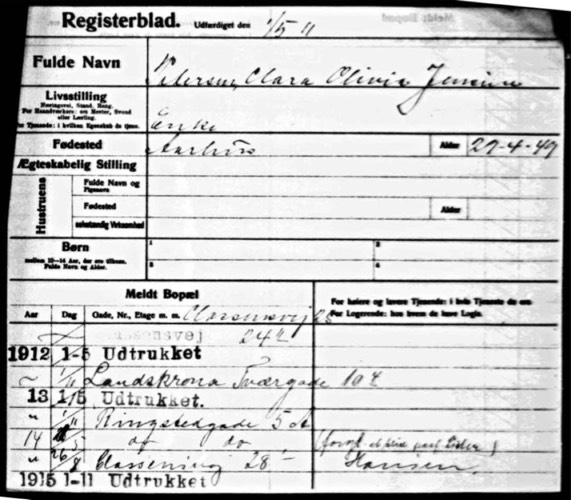 Registerblad. Udfærdiget den 1/5 11
Fulde Navn
Petersen, Clara Olivia Jensine
Livsstilling
Næringsvej, Stand, Rang.
For Haandværkere: om Mester, Svend
eller Lærling.
For Tjenende: i hvilken Egenskab de tjene.
Enke
Fødested Aarhus Alder 29-4-49
Ægteskabelig Stilling
Hustruens
Fulde Navn og
Pigenavn
Fødested Alder
selvstændig Virksomhed
Børn
mellem 10-14 Aar, der ere tilbage.
Fulde Navn og Alder.
1 2
3
Meldt Bopæl
For højere og lavere Tjenende: i hvis Tjeneste de ere.
For Logerende: hos hvem de have Logis.
Aar Dag Gade, Nr., Etage m. m. Classensvej 28
24
1912 1-5 Udtrukket
Landskrona Tværgade 10
13 1/5 Udtrukket.
" Ringstedgade 5
14 do do
" Classensvej 28
Hansen
1915 1-11 Udtrukket